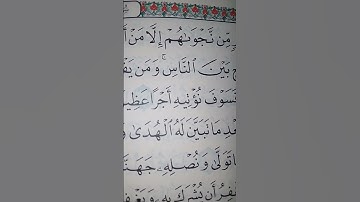 مِّن نَّجْوَىٰهُمْ إِلَّا مَنْ أَ
بَيْنَ ٱلنَّاسِ ۚ وَمَن يَفْ
فَسَوْفَ نُؤْتِيهِ أَجْرًا عَظِيمً
مَا تَبَيَّنَ لَهُ ٱلْهُدَىٰ وَ
مَا تَوَلَّىٰ وَنُصْلِهِۦ جَهَنَّ
أَن يُشْرَكَ بِهِۦ وَيَغْفِ